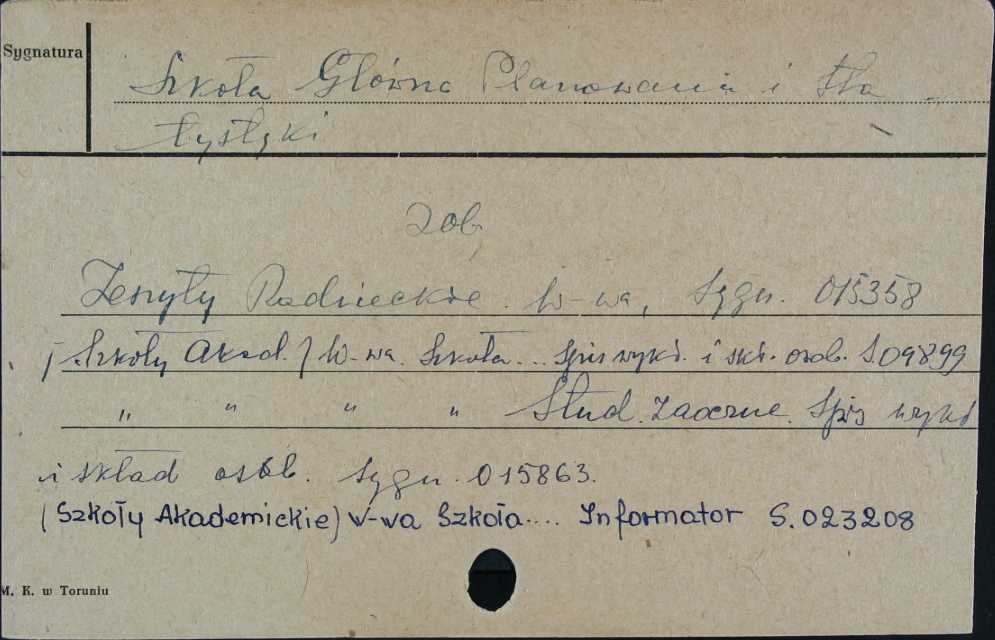 Sygnatura
Szkoła Główna Planowania i Sta-
tystyki
Zob.
Zeszyty Radzieckie. W-wa, Sygn. 015358
/Szkoły Akad./ W-wa. Szkoła... Spis wykł. i skł. osob. S 09899
" " " " Stud. Zaoczne. Spis wykł
i skład osob. Sygn. 015863.
(Szkoły Akademickie) W-wa Szkoła.... Informator S. 023208
M. K. w Toruniu